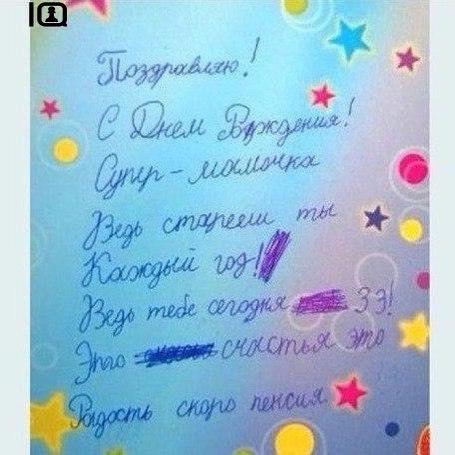 Поздравляю!
С Днем Вррждения!
Супер - мамочка
Ведь стареешь ты
Каждый год!
Ведь тебе сегодня 33!
Это счастья это
Радость скоро пенсия